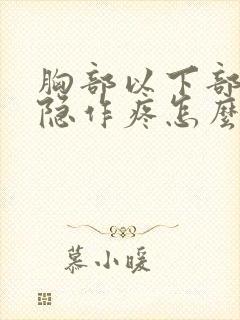 胸部以下部
隐作疼怎麼
慕小暖